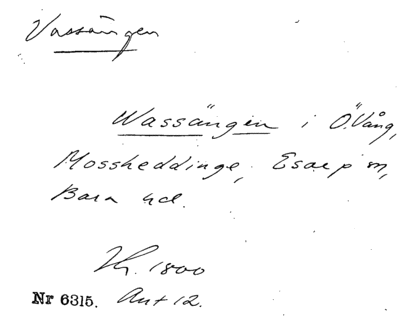 Vassängen
Wassängen i Ö.Vång,
Mossheddinge, Esarp sn,
Bara hd.
Kh. 1800
Nr 6315. Akt 12.